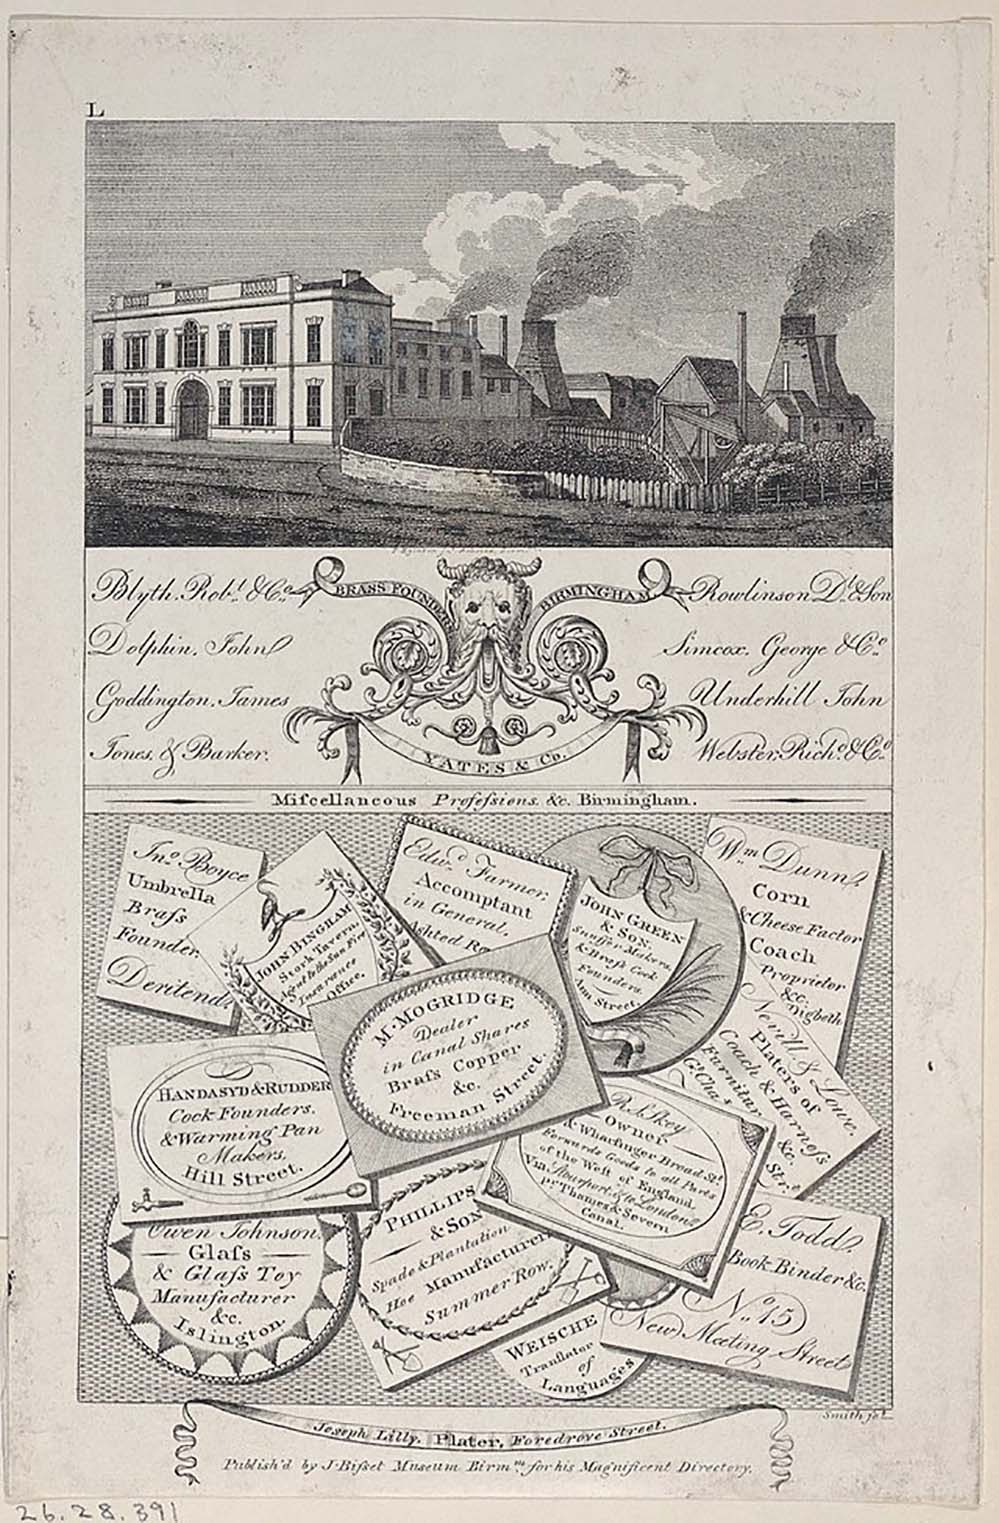 L
Blyth, Robt. & Co.
Dolphin, John
Goddington, James
Jones, & Barker.
BRASS FOUNDERS
BIRMINGHAM
YATES & Co.
Rowlinson Dl. & Son
Simcox, George & Co.
Underhill John
Webster, Richd. & Co.
Miſcellaneous Profeſsions, &c. Birmingham.
Jno. Boyce
Umbrella
Braſs
Founder,
Deritend.
JOHN BINGHAM
Stork Tavern,
Agent to the Sun Fire
Insurance
Office.
Edwd. Farmer,
Accomptant
in General,
Ashted
JOHN GREEN
& SON,
Snuffer Makers,
& Braſs Cock
Founders,
Ann Street.
Wm. Dunn,
Corn
& Cheese Factor
Coach
Proprietor
&c.
Digbeth
M. MOGRIDGE
Dealer
in Canal Shares
Braſs Copper
&c.
Freeman Street.
Nevill & Lowe,
Platers of
Coach & Harneſs
Furniture &c.
Gt. Chas. Strt.
HANDASYD & RUDDER
Cock Founders,
& Warming Pan
Makers,
Hill Street.
R. Skey
Owner
& Wharfinger Broad St.
Forwards Goods to all Parts
of the West of England,
Via Stourport, & to London
pr. Thames & Severn
Canal.
Owen Johnson,
Glaſs
& Glaſs Toy
Manufacturer
&c.
Islington.
PHILLIPS
& SON
Spade & Plantation
Hoe Manufacturers
Summer Row.
E. Todd,
Book Binder &c.
No. 15
New Meeting Street
WEISCHE
Translator
of
Languages
Smith
Joseph Lilly, Plater, Foredrove Street.
Publish'd by J. Biſset Museum Birmm. for his Magnificent Directory.
26.28.391